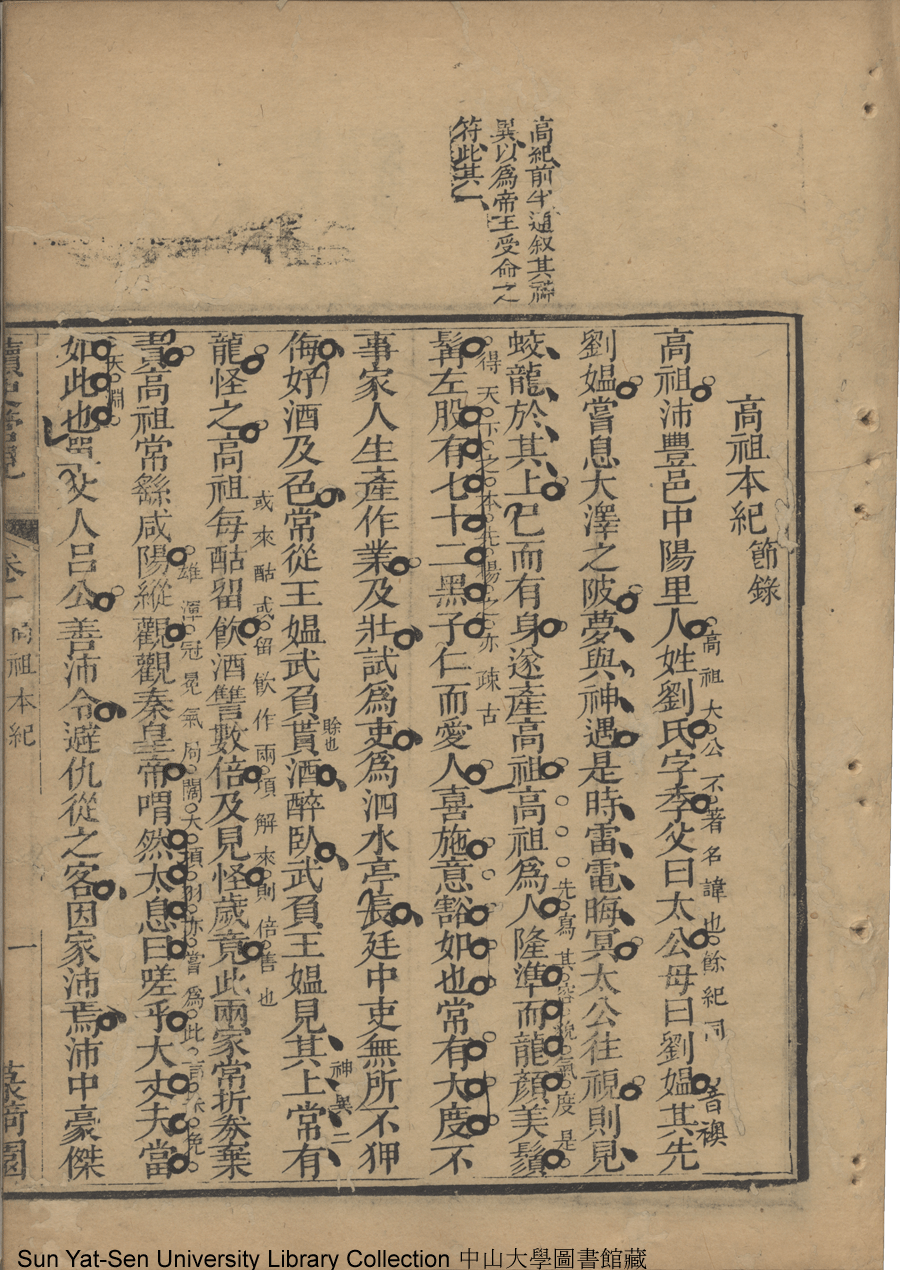 高紀前半通叙其神
異以爲帝王受命之
符此其一
高祖本紀節錄
高祖大公不著名諱也餘紀同
音襖
高祖沛豐邑中陽里人姓劉氏字季父曰太公母曰劉媼其先
劉媼嘗息大澤之陂夢與神遇是時雷電晦冥太公往視則見
先寫其容貌氣度是
蛟龍於其上已而有身遂產高祖高祖爲人隆準而龍顏美鬚
得天下之本先揚之亦疎古
髯左股有七十二黑子仁而愛人喜施意豁如也常有大度不
事家人生產作業及壯試爲吏爲泗水亭長廷中吏無所不狎
神異二
賒也
侮好酒及色常從王媼武負貰酒醉臥武負王媼見其上常有
或來酤或留飲作兩項解來則倍售也
龍怪之高祖每酤留飲酒讐數倍及見怪歲竟此兩家常折券棄
雄渾冠冕氣局闊大項羽亦嘗爲此言
責高祖常繇咸陽縱觀觀秦皇帝喟然太息曰嗟乎大丈夫當
天淵
如此也單父人呂公善沛令避仇從之客因家沛焉沛中豪傑
卷一
高祖本紀
一
Sun Yat-Sen University Library Collection 中山大學圖書館藏